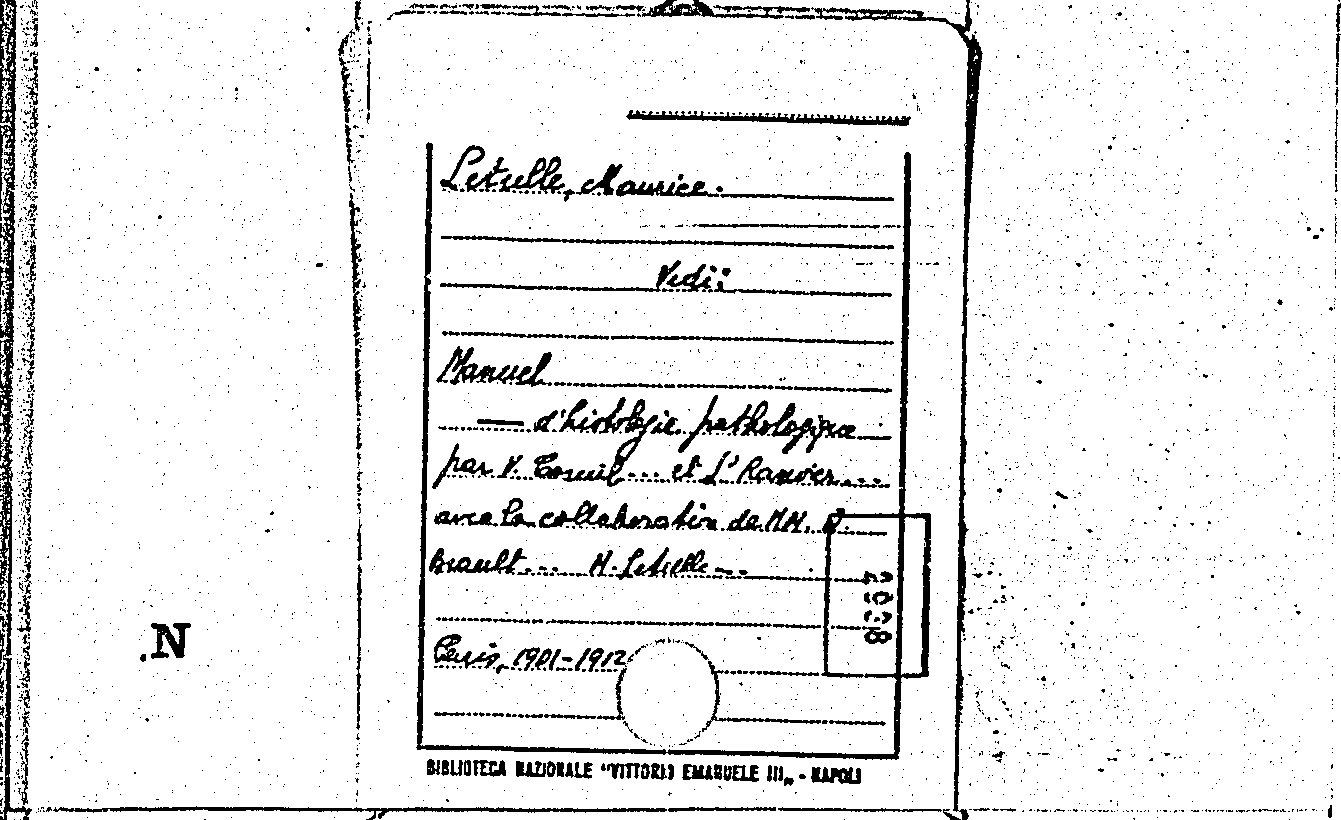 Letulle, Maurice.
Vedi:
Manuel
— d'histologie pathologique
par V. Cornil ... et L. Ranvier ...
avec la collaboration de MM. A.
Brault ... M. Letulle ...
2938
Paris, 1901-1912
N.
BIBLIOTECA NAZIONALE "VITTORIO EMANUELE III„ - NAPOLI